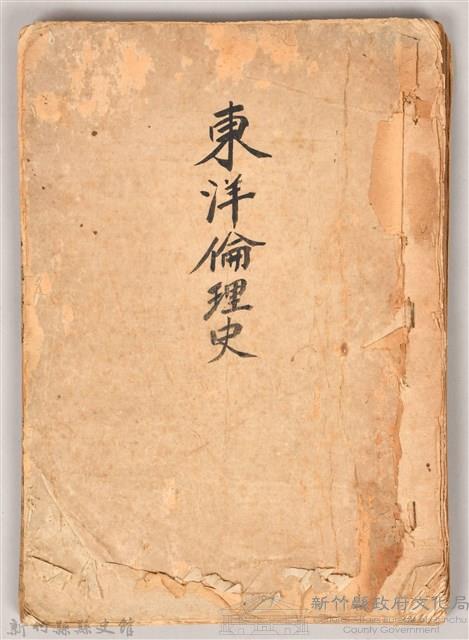 東洋倫理史
新竹縣政府文化局
Cultural Affairs Bureau of Hsinchu
County Government
新竹縣縣史館